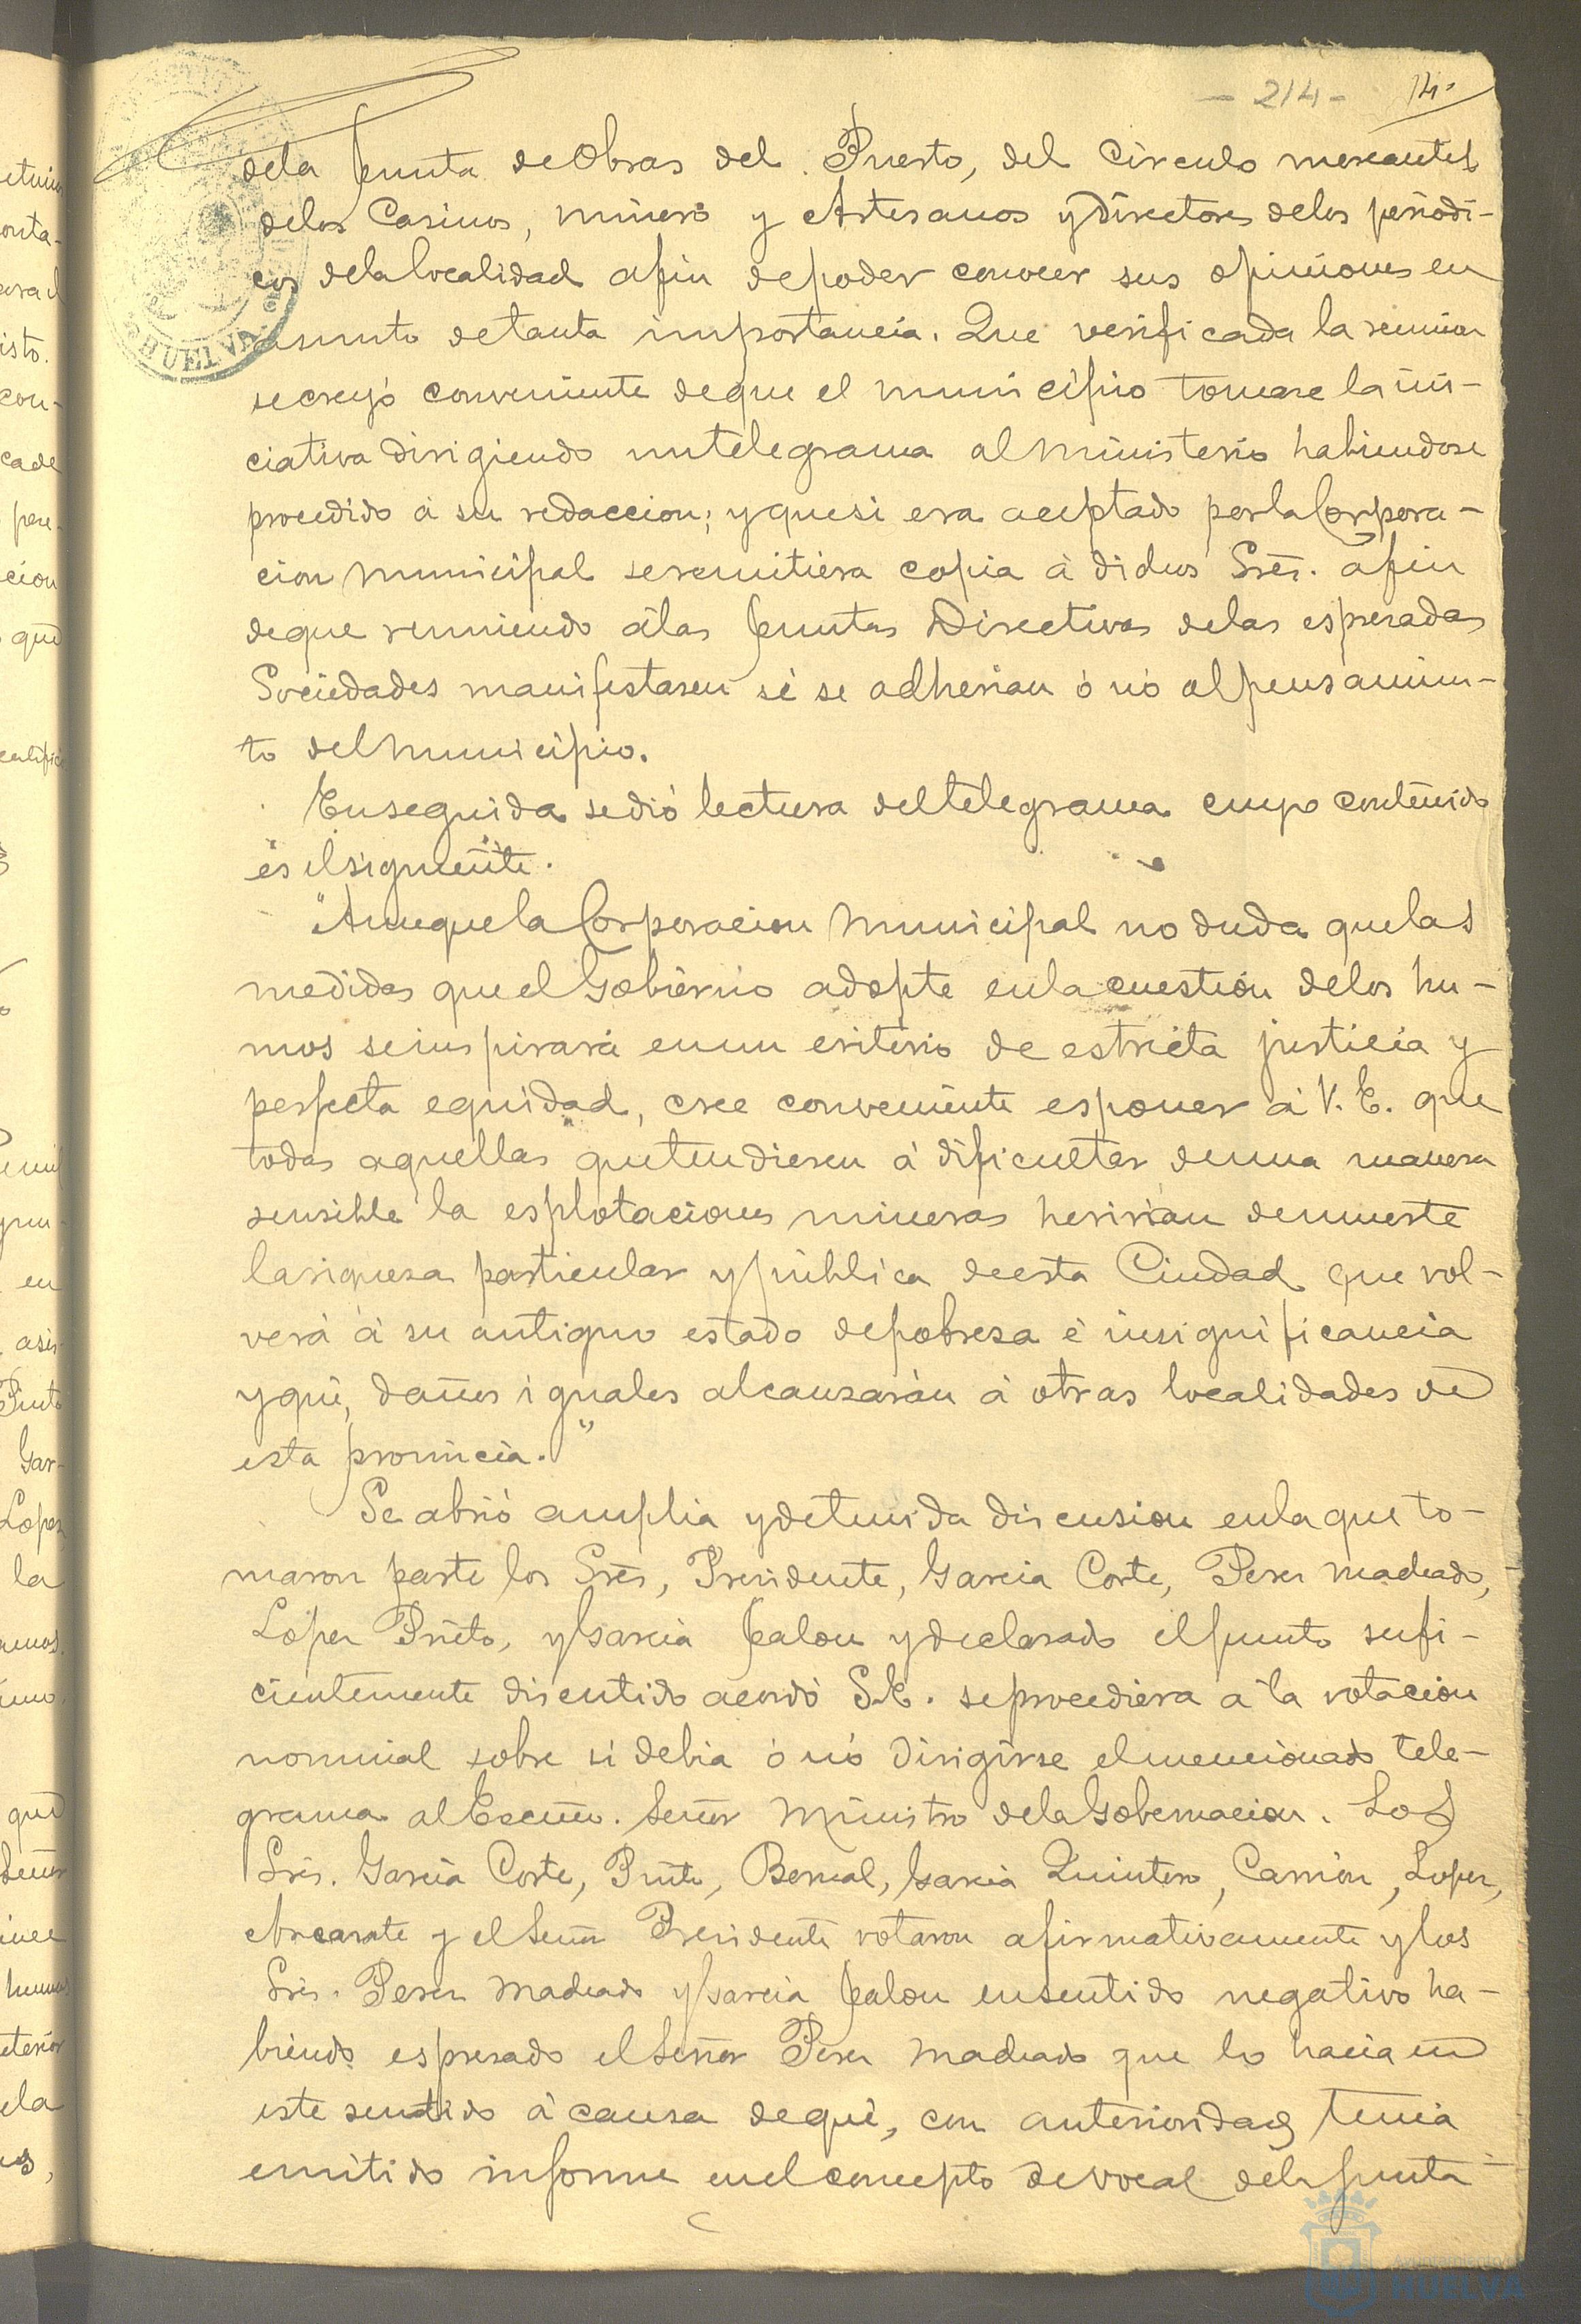 - 214 - 14.
de la Junta de Obras del Puerto, del Círculo mercantil
de los Casinos, minero y Artesanos y Directores de los periódi-
cos de la localidad afin de poder conocer sus opiniones en
asunto de tanta importancia. Que verificada la reunion
se creyó conveniente de que el municipio tomare la ini-
ciativa dirigiendo un telegrama al ministerio habiendose
procedido á su redaccion; y que si era aceptado por la Corpora-
cion municipal se remitiera copia á dichos Sres. afin
de que reuniendo á las Juntas Directivas de las espresadas
Sociedades manifestasen si se adherian ó nó al pensamien-
to del municipio.
Enseguida se dió lectura del telegrama cuyo contenido
es el siguiente.
"Aunque la Corporacion Municipal no duda que las
medidas que el Gobierno adopte en la cuestión de los hu-
mos se inspirará en un criterio de estricta justicia y
perfecta equidad, cree conveniente esponer á V. E. que
todas aquellas que tendieren á dificultar de una manera
sensible la esplotaciones mineras heririan de muerte
la riqueza particular y pública de esta Ciudad que vol-
verá á su antiguo estado de pobreza é insignificancia
y que, daños iguales alcanzarán á otras localidades de
esta provincia."
Se abrió amplia y detenida discusion en la que to-
maron parte los Sres, Presidente, Garcia Corte, Perez Machado,
López Prieto, y Garcia Jalon y declarado el punto sufi-
cientemente discutido acordó S.E. se procediera á la votacion
nominal sobre si debia ó nó dirigirse el mencionado tele-
grama al Excmo. Señor Ministro de la Gobernacion. Los
Sres. Garcia Corte, Prieto, Bernal, Garcia Quintero, Carrión, Lopez,
Azcarate y el Señor Presidente votaron afirmativamente y los
Sres. Perez Machado y Garcia Jalon en sentido negativo ha-
biendo espresado el Señor Perez Machado que lo hacia en
este sentido á causa de que, con anterioridad tenia
emitido informe en el concepto de vocal de la Junta
HUELVA
Ayuntamiento
HUELVA